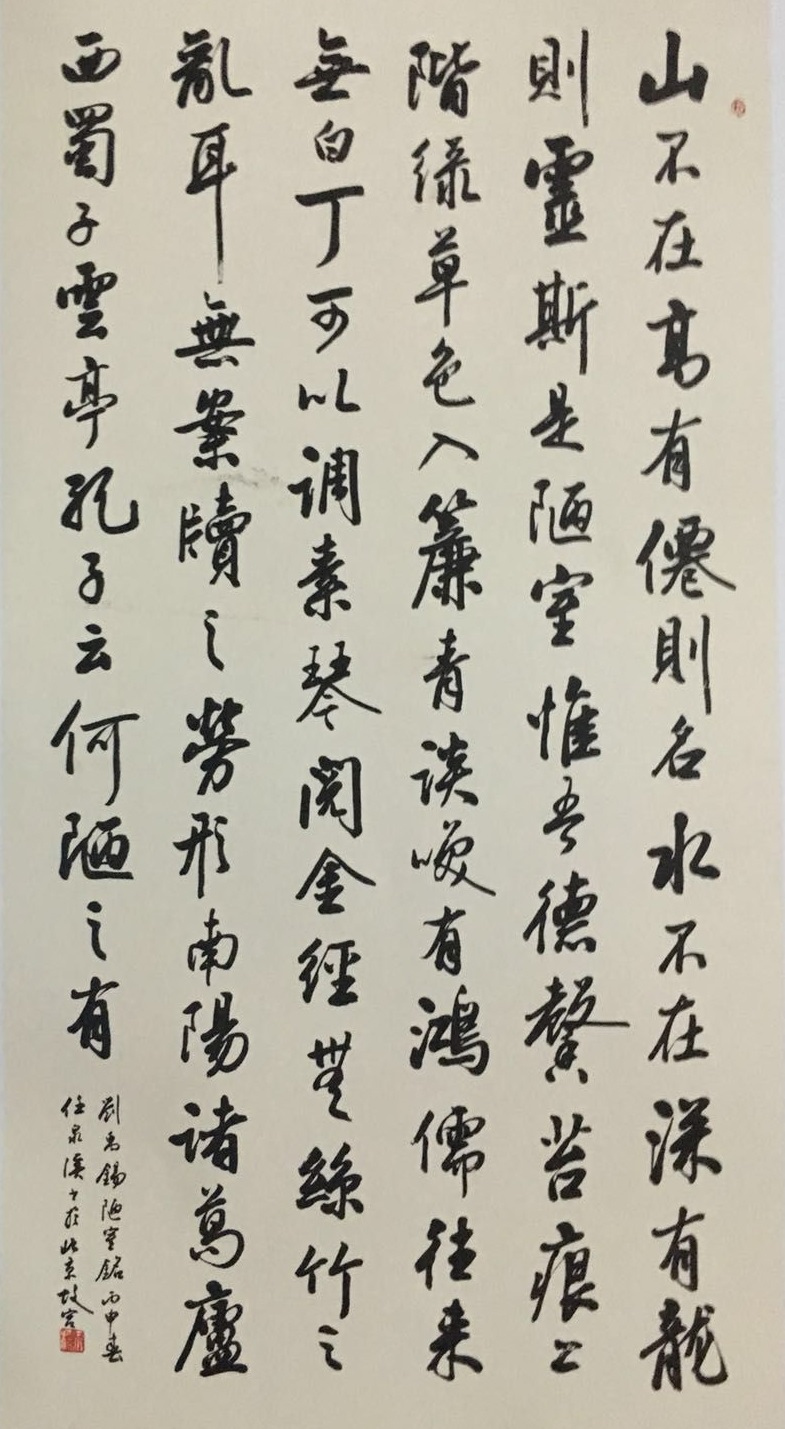 山不在高有僊則名水不在深有龍
則靈斯是陋室惟吾德馨苔痕上
階綠草色入簾青談咲有鴻儒往来
無白丁可以調素琴閱金經無絲竹之
亂耳無案牘之勞形南陽諸葛廬
西蜀子雲亭孔子云何陋之有
劉禹錫陋室銘丙申春
任泉溪書於北京故宮